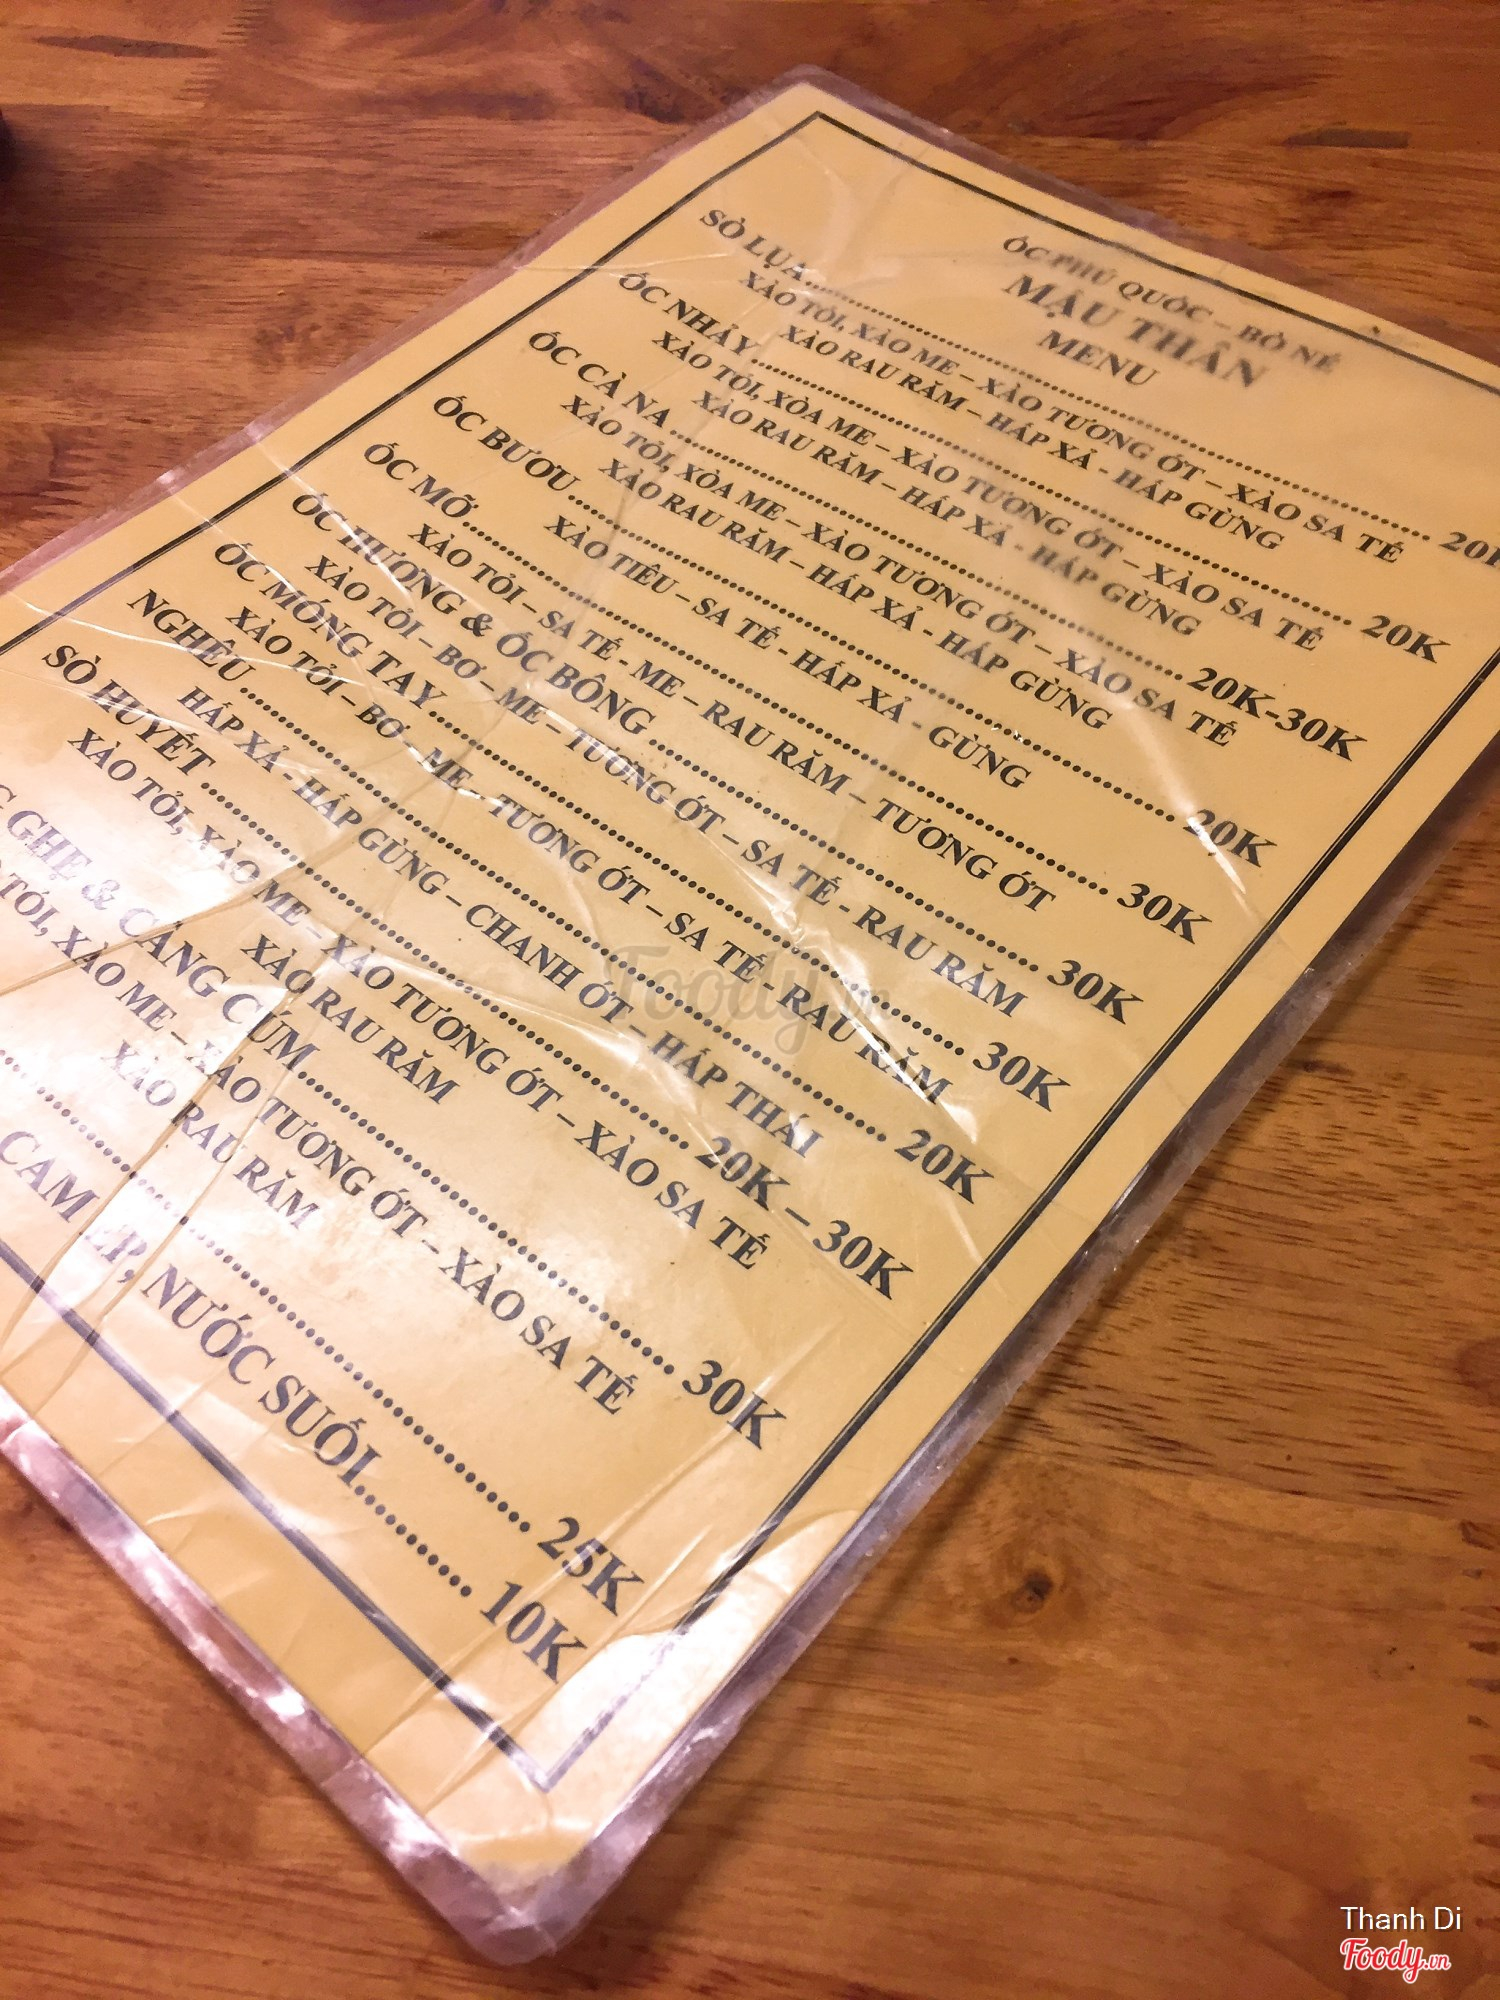 ỐC PHÚ QUỐC – BÒ NÉ
MẬU THÂN
MENU
SÒ LỤA 20K
XÀO TỎI, XÀO ME – XÀO TƯƠNG ỚT – XÀO SA TẾ
XÀO RAU RĂM – HẤP XẢ - HẤP GỪNG
ỐC NHẢY 20K
XÀO TỎI, XÒA ME – XÀO TƯƠNG ỚT – XÀO SA TẾ
XÀO RAU RĂM – HẤP XẢ - HẤP GỪNG
ỐC CÀ NA 20K-30K
XÀO TỎI, XÒA ME – XÀO TƯƠNG ỚT – XÀO SA TẾ
XÀO RAU RĂM – HẤP XẢ - HẤP GỪNG
ỐC BƯƠU 20K
XÀO TIÊU – SA TẾ - HẤP XẢ - GỪNG
ỐC MỠ 30K
XÀO TỎI – SA TẾ - ME – RAU RĂM – TƯƠNG ỚT
ỐC HƯƠNG & ỐC BÔNG 30K
XÀO TỎI – BƠ – ME – TƯƠNG ỚT – SA TẾ - RAU RĂM
ỐC MÓNG TAY 30K
XÀO TỎI – BƠ - ME - TƯƠNG ỚT – SA TẾ - RAU RĂM
NGHÊU 20K
HẤP XẢ - HẤP GỪNG – CHANH ỚT – HẤP THÁI
SÒ HUYẾT 20K – 30K
XÀO TỎI, XÀO ME – XÀO TƯƠNG ỚT – XÀO SA TẾ
XÀO RAU RĂM
GHẸ & CÀNG CÚM 30K
TỎI, XÀO ME – XÀO TƯƠNG ỚT – XÀO SA TẾ
XÀO RAU RĂM
25K
CAM ÉP, NƯỚC SUỐI 10K
Foody.vn
Thanh Di
Foody.vn